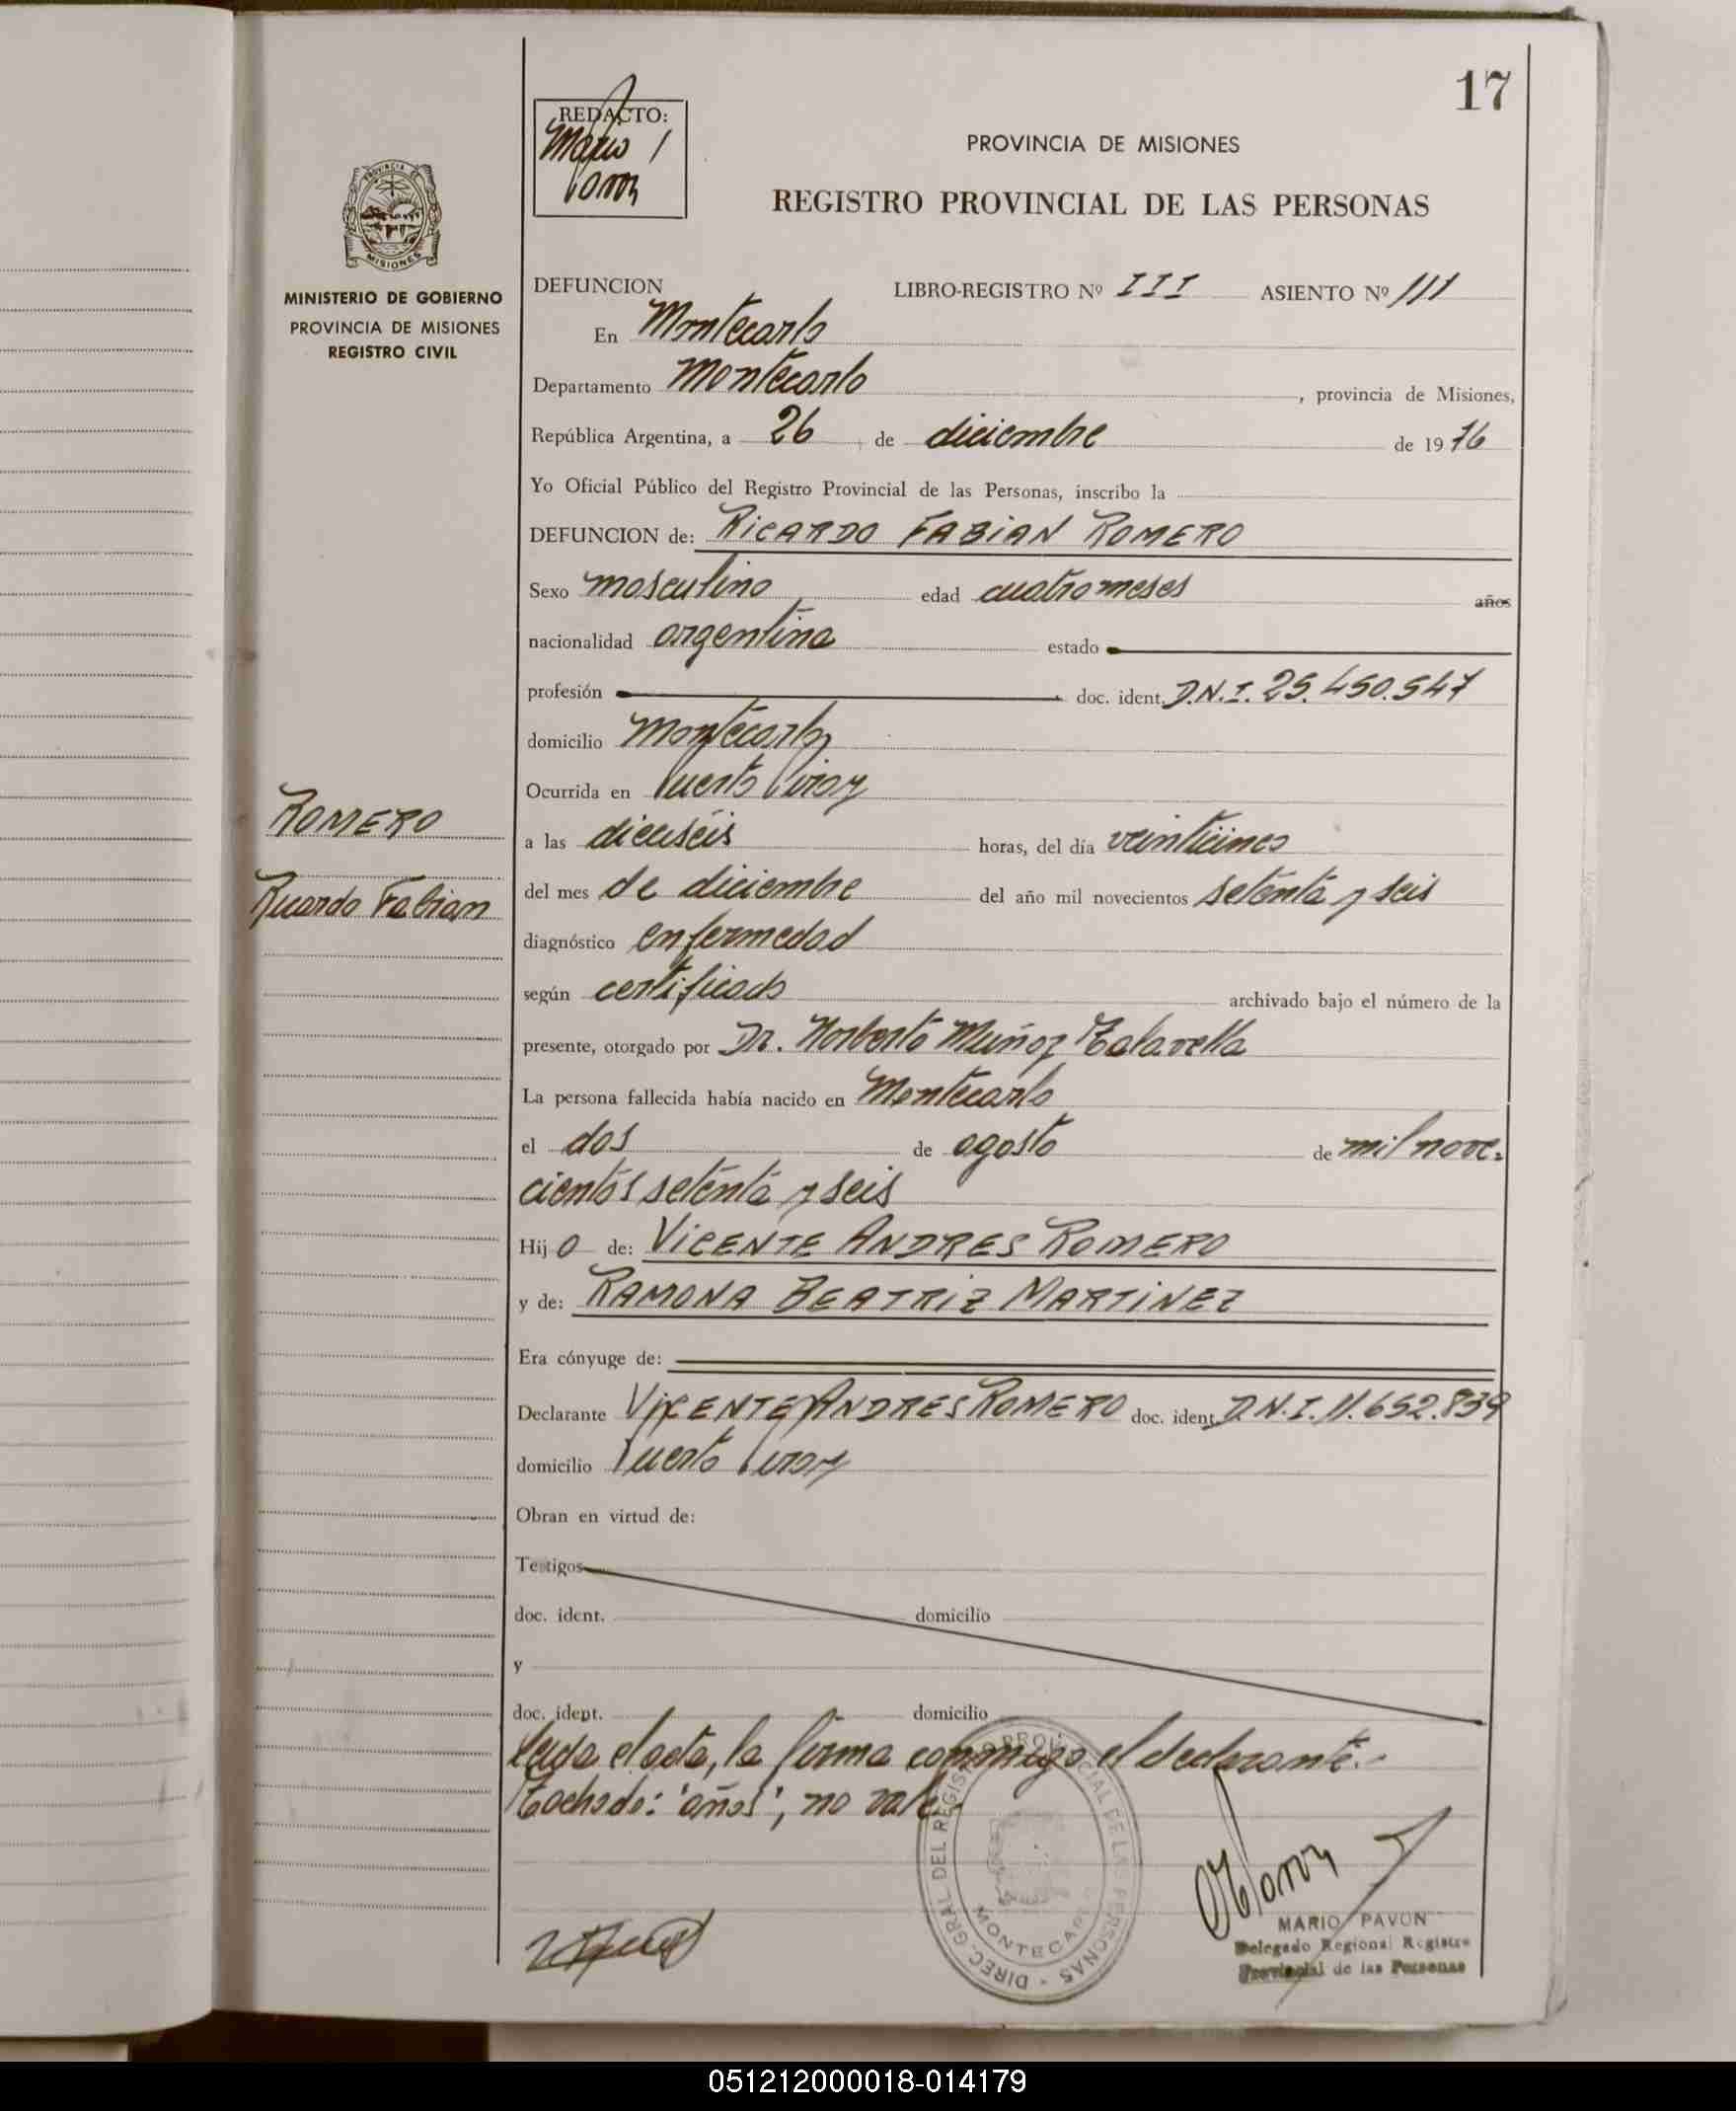 17
REDACTO:
Mario
Pavon
PROVINCIA DE MISIONES
REGISTRO PROVINCIAL DE LAS PERSONAS
PROVINCIA DE
MISIONES
MINISTERIO DE GOBIERNO
PROVINCIA DE MISIONES
REGISTRO CIVIL
DEFUNCION LIBRO-REGISTRO Nº III ASIENTO Nº 111
En Montecarlo
Departamento Montecarlo, provincia de Misiones,
República Argentina, a 26 de diciembre de 1976
Yo Oficial Público del Registro Provincial de las Personas, inscribo la
DEFUNCION de: RICARDO FABIAN ROMERO
Sexo masculino edad cuatro meses años
nacionalidad argentina estado
profesión doc. ident. D.N.I. 25.450.547
domicilio Montecarlo
Ocurrida en Puerto Piray
ROMERO
Ricardo Fabian
a las dieciséis horas, del día veinticinco
del mes de diciembre del año mil novecientos setenta y seis
diagnóstico enfermedad
según certificado archivado bajo el número de la
presente, otorgado por Dr. Norberto Muñoz Talavella
La persona fallecida había nacido en Montecarlo
el dos de agosto de mil nove-
cientos setenta y seis
Hijo de: VICENTE ANDRES ROMERO
y de: RAMONA BEATRIZ MARTINEZ
Era cónyuge de:
Declarante VICENTE ANDRES ROMERO doc. ident. D.N.I. 11.652.839
domicilio Puerto Piray
Obran en virtud de:
Testigos
doc. ident. domicilio
y
doc. ident. domicilio
Leida el acta, la firma conmigo el declarante.-
Tachado: "años", no vale.-
DIREC. GRAL. DEL REGISTRO PROVINCIAL DE LAS PERSONAS
MONTECARLO
MARIO PAVON
Delegado Regional Registro
Provincial de las Personas
051212000018-014179